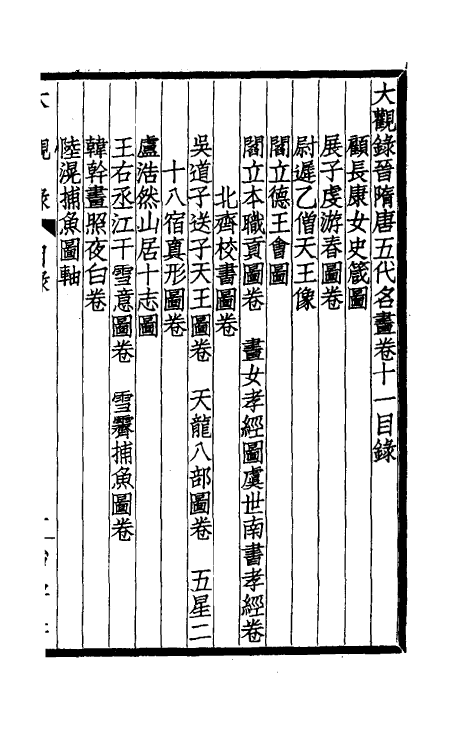 大觀錄晉隋唐五代名畫卷十一目錄
顧長康女史箴圖
展子虔游春圖卷
尉遲乙僧天王像
閻立德王會圖
閻立本職貢圖卷　畫女孝經圖虞世南書孝經卷
北齊校書圖卷
吳道子送子天王圖卷　天龍八部圖卷　五星二
十八宿真形圖卷
盧浩然山居十志圖
王右丞江干雪意圖卷　雪霽捕魚圖卷
韓幹畫照夜白卷
陸滉捕魚圖軸
大觀錄　目錄